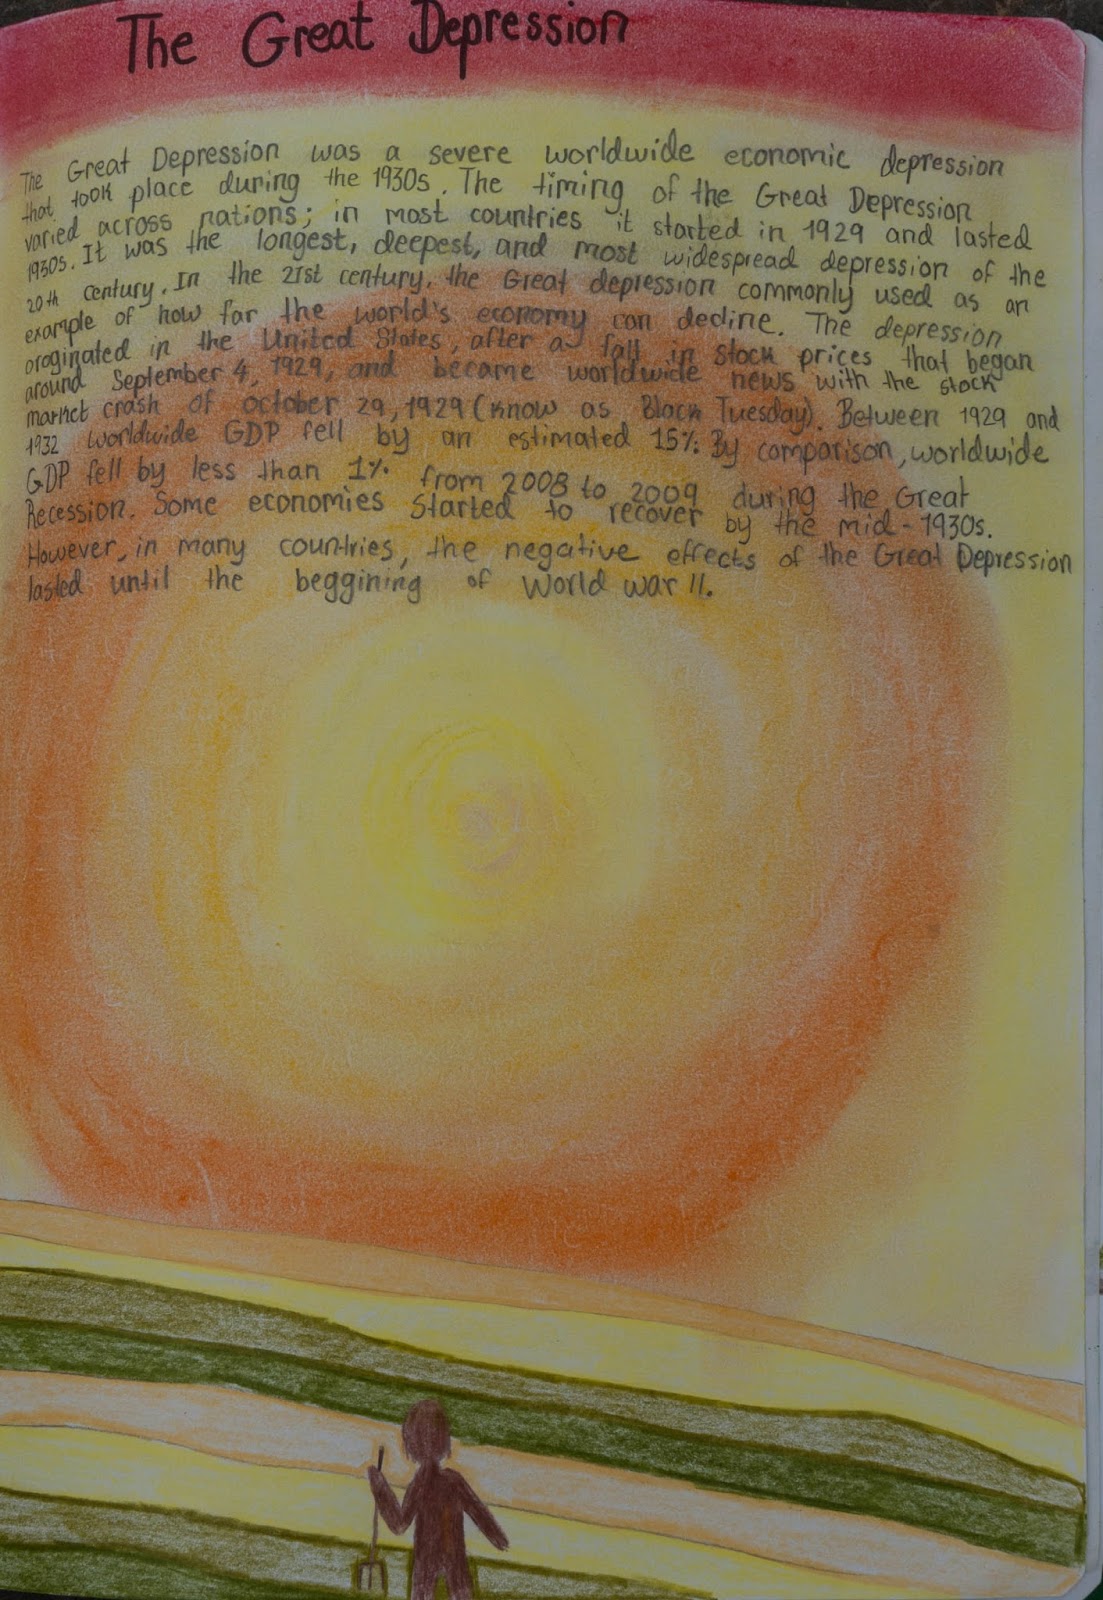 The Great Depression
The Great Depression was a severe worldwide economic depression
that took place during the 1930s. The timing of the Great Depression
varied across nations; in most countries it started in 1929 and lasted
1930s. It was the longest, deepest, and most widespread depression of the
20th century. In the 21st century, the Great depression commonly used as an
example of how far the world's economy can decline. The depression
oraginated in the United States, after a fall in stock prices that began
around September 4, 1929, and became worldwide news with the stock
market crash of october 29, 1929 (know as Black Tuesday). Between 1929 and
1932 worldwide GDP fell by an estimated 15%. By comparison, worldwide
GDP fell by less than 1% from 2008 to 2009 during the Great
Recession. Some economies started to recover by the mid-1930s.
However, in many countries, the negative effects of the Great Depression
lasted until the beggining of World war II.